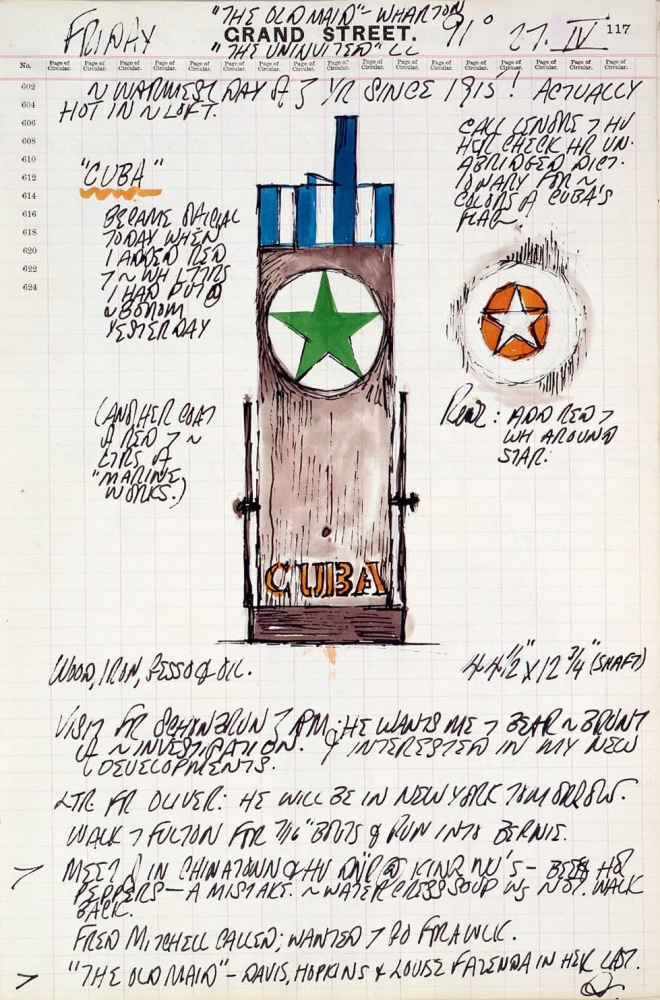 "THE OLD MAID" - WHARTON
FRIDAY GRAND STREET. 91° 27. IV 117
"THE UNINVITED" LL
No. Page of Circular. Page of Circular. Page of Circular. Page of Circular. Page of Circular. Page of Circular. Page of Circular. Page of Circular. Page of Circular. Page of Circular. Page of Circular. Page of Circular. Page of Circular.
602
604
606
608
610
612
614
616
618
620
622
624
~ WARMEST DAY YR SINCE 1915! ACTUALLY
HOT IN ~ LOFT.
CALL LENORE 7 HV
HER CHECK HR UN-
ABRIDGED DICT-
IONARY FOR ~
COLORS CUBA'S
FLAG.
"CUBA"
BECAME OFFICIAL
TODAY WHEN
I ADDED RED
7 ~ WH LTTRS
I HAD PUT @
~ BOTTOM
YESTERDAY
(ANOTHER COAT
RED 7 ~
LTRS
"MARINE
WORKS.)
Rear: ADD RED 7
WH AROUND
STAR.
CUBA
WOOD, IRON, GESSO & OIL. 44 1/2" X 12 3/4" (SHAFT)
VISIT FR SCHONBRUN 7 PM; HE WANTS ME 7 BEAR ~ BRUNT
~ INVESTIGATION. & INTERESTED IN MY NEW
DEVELOPMENTS.
LTR FR OLIVER: HE WILL BE IN NEW YORK TOMORROW.
WALK 7 FULTON FOR 7/16" BOLTS & RUN INTO BERNIE.
> MEET IN CHINATOWN & HV @ KING WU'S - BEEF
PEPPERS - A MISTAKE. ~ WATERCRESS SOUP WS NOT. WALK
BACK.
FRED MITCHELL CALLED; WANTED 7 GO FR A WLK.
> "THE OLD MAID" - DAVIS, HOPKINS & LOUISE FAZENDA IN HER LAST.